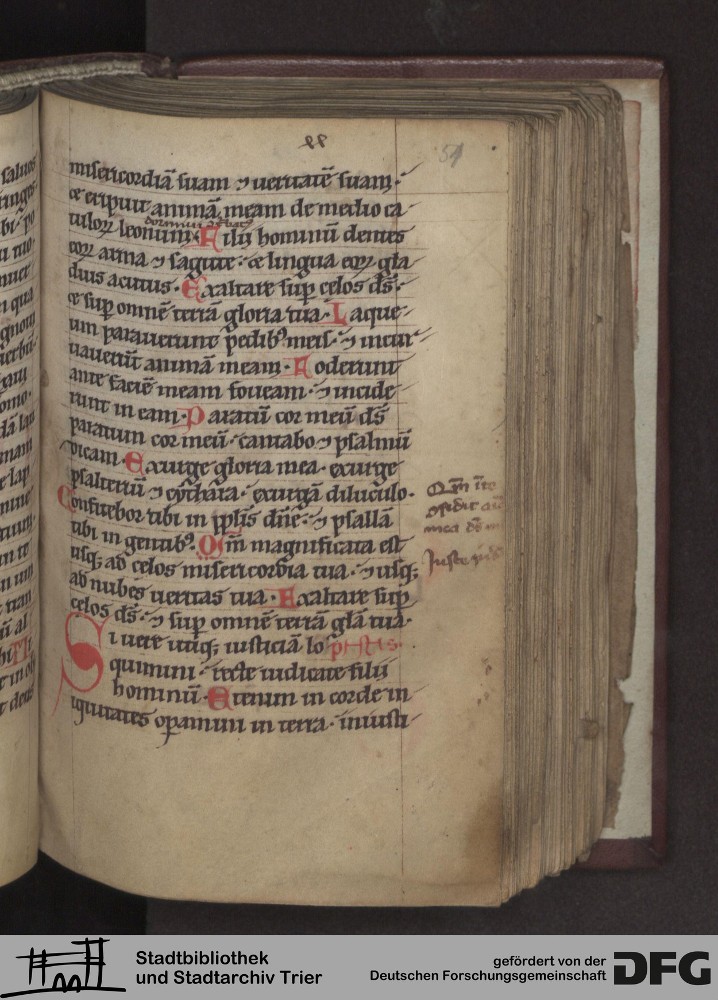 51
misericordiā suam ⁊ ueritatē suam.
et eripuit animā meam de medio ca
tuloꝝ leonum. Filij hominū dentes
dormiui
eoꝝ arma ⁊ sagitte. et lingua eoꝝ gla
dius acutus. Exaltare suꝑ celos ds̄.
et suꝑ omnē terrā gloria tua. Laque
um parauerunt pedibꝰ meis. ⁊ incur
uauerūt animā meam. Foderunt
ante faciē meam foueam. ⁊ incide
runt in eam. Paratū cor meū ds̄
paratum cor meū. cantabo ⁊ psalmū
dicam. Exurge gloria mea. exurge
psalteriū ⁊ cythara. exurgā diluculo.
Confitebor tibi in ppl̄is dn̄e. ⁊ psallā
tibi in gentibꝰ. Qm̄ magnificata est
usqꝫ ad celos misericordia tua. ⁊ usqꝫ
ad nubes ueritas tua. Exaltare suꝑ
celos ds̄. ⁊ suꝑ omnē terrā gl̄a tua.
Si uere utiqꝫ iusticiā lo
quimini. recte iudicate filii
hominū. Etenim in corde in
iquitates oꝑamini in terra. iniusti
Qm̄ in te
mea
Juste
Stadtbibliothek
und Stadtarchiv Trier
gefördert von der
Deutschen Forschungsgemeinschaft
DFG